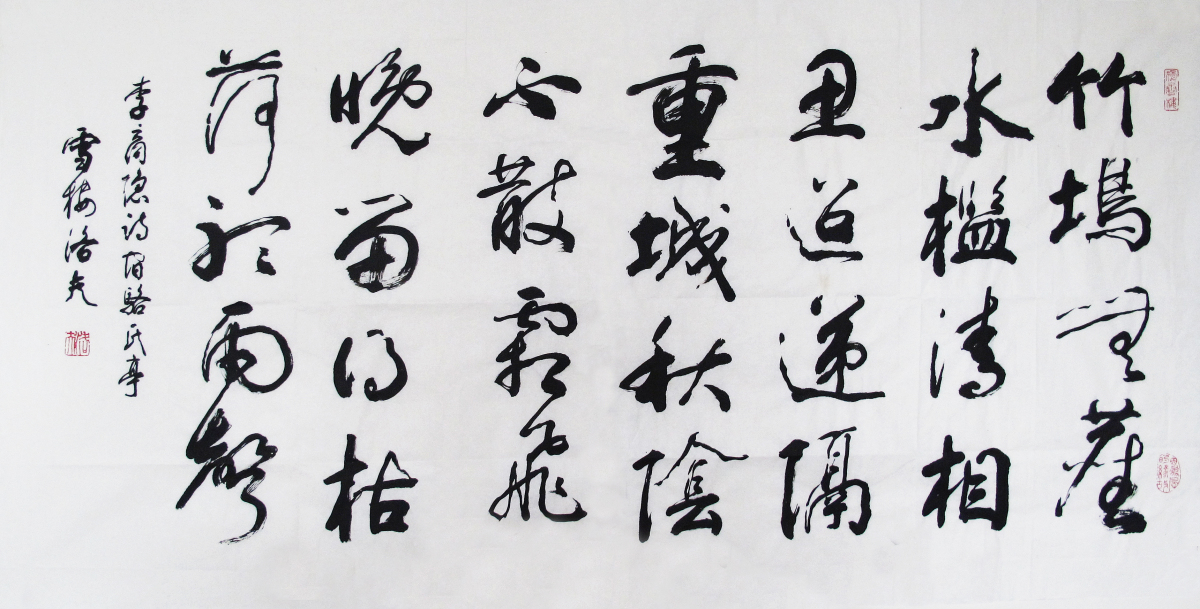 竹塢無塵
水檻清相
思迢遞隔
重城秋陰
不散霜飛
晚留得枯
荷聽雨聲
李商隱詩宿駱氏亭
雪樓洛夫